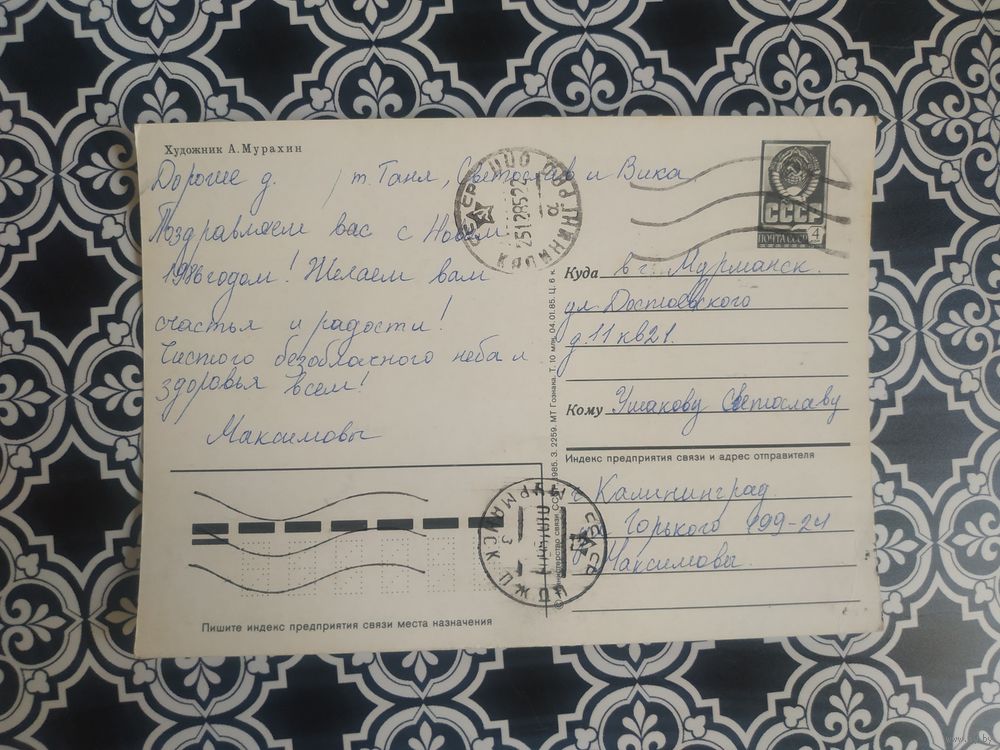 Художник А.Мурахин
Дорогие д. , т. Таня, Светослав и Вика
Поздравляем вас с Новым
1986 годом! Желаем вам
счастья и радости!
Чистого безоблачного неба и
здоровья всем!
Максимовы
СССР
ПОЧТА СССР
4
Куда в г. Мурманск
ул Достоевского
д. 11 кв 21.
Кому Ушакову Светославу
Индекс предприятия связи и адрес отправителя
г Калининград
Горького 199-24
Максимовы.
Пишите индекс предприятия связи места назначения
© Министерство связи СССР 1985. З. 2259. МТ Гознака. Т. 10 млн. 04.01.85. Ц. 6 к.
СССР КАЛИНИНГРАД
25128522
СССР МУРМАНСК